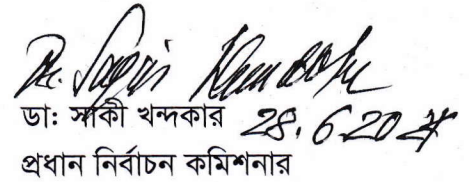 Dr. Saqi Khandaker
ডা: সাকী খন্দকার 28.6.20
প্রধান নির্বাচন কমিশনার